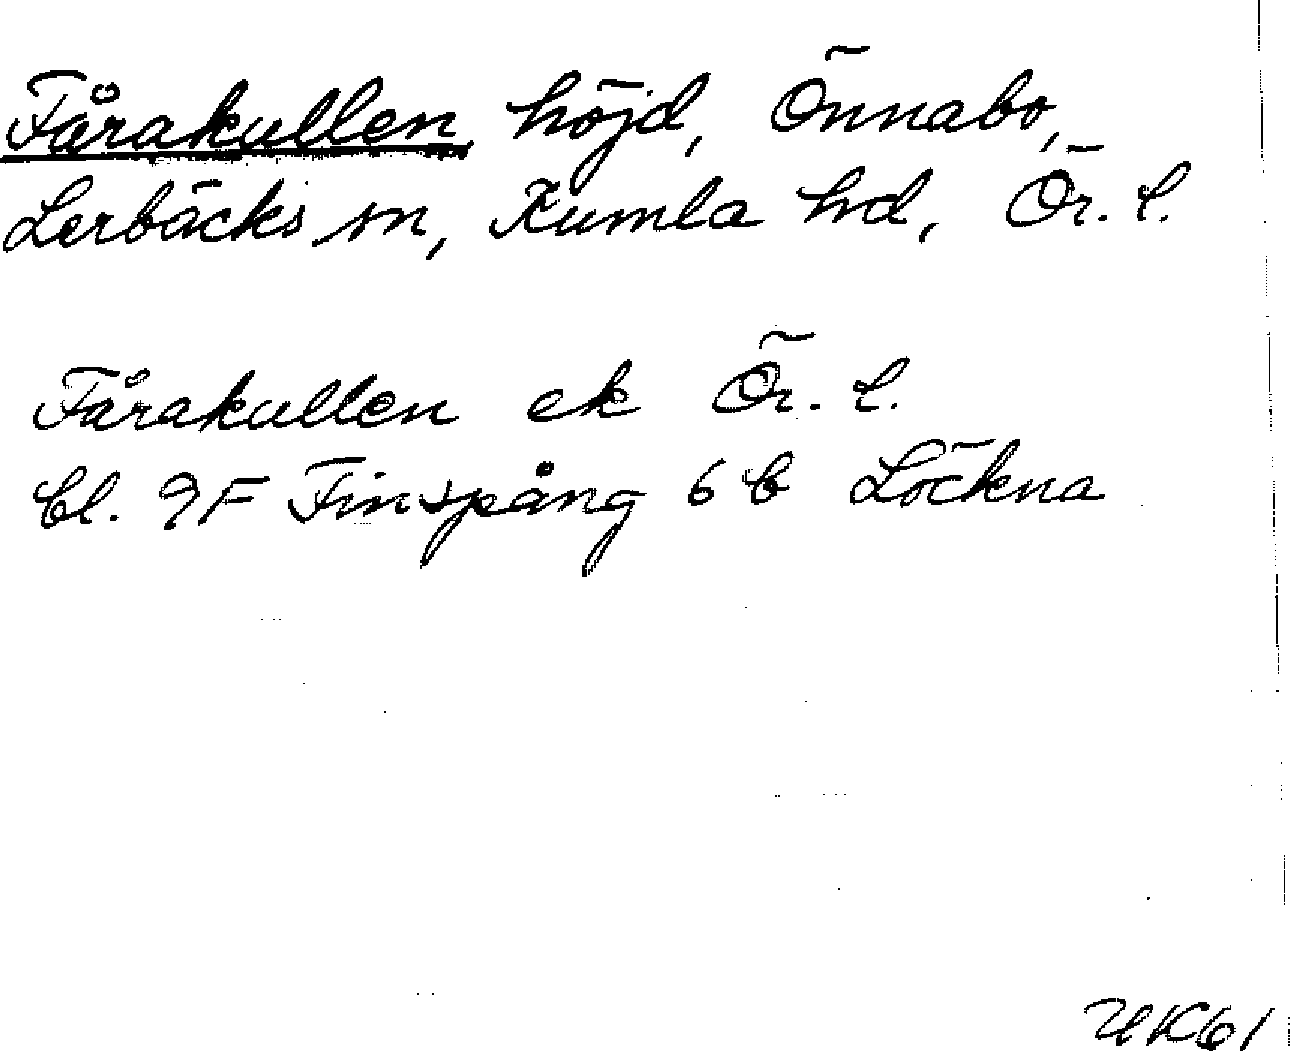 Fårakullen, höjd, Önnabo,
Lerbäcks sn, Kumla hd, Ör. l.
Fårakullen ek Ör. l.
bl. 9F Finspång 6 b Löckna
UK61